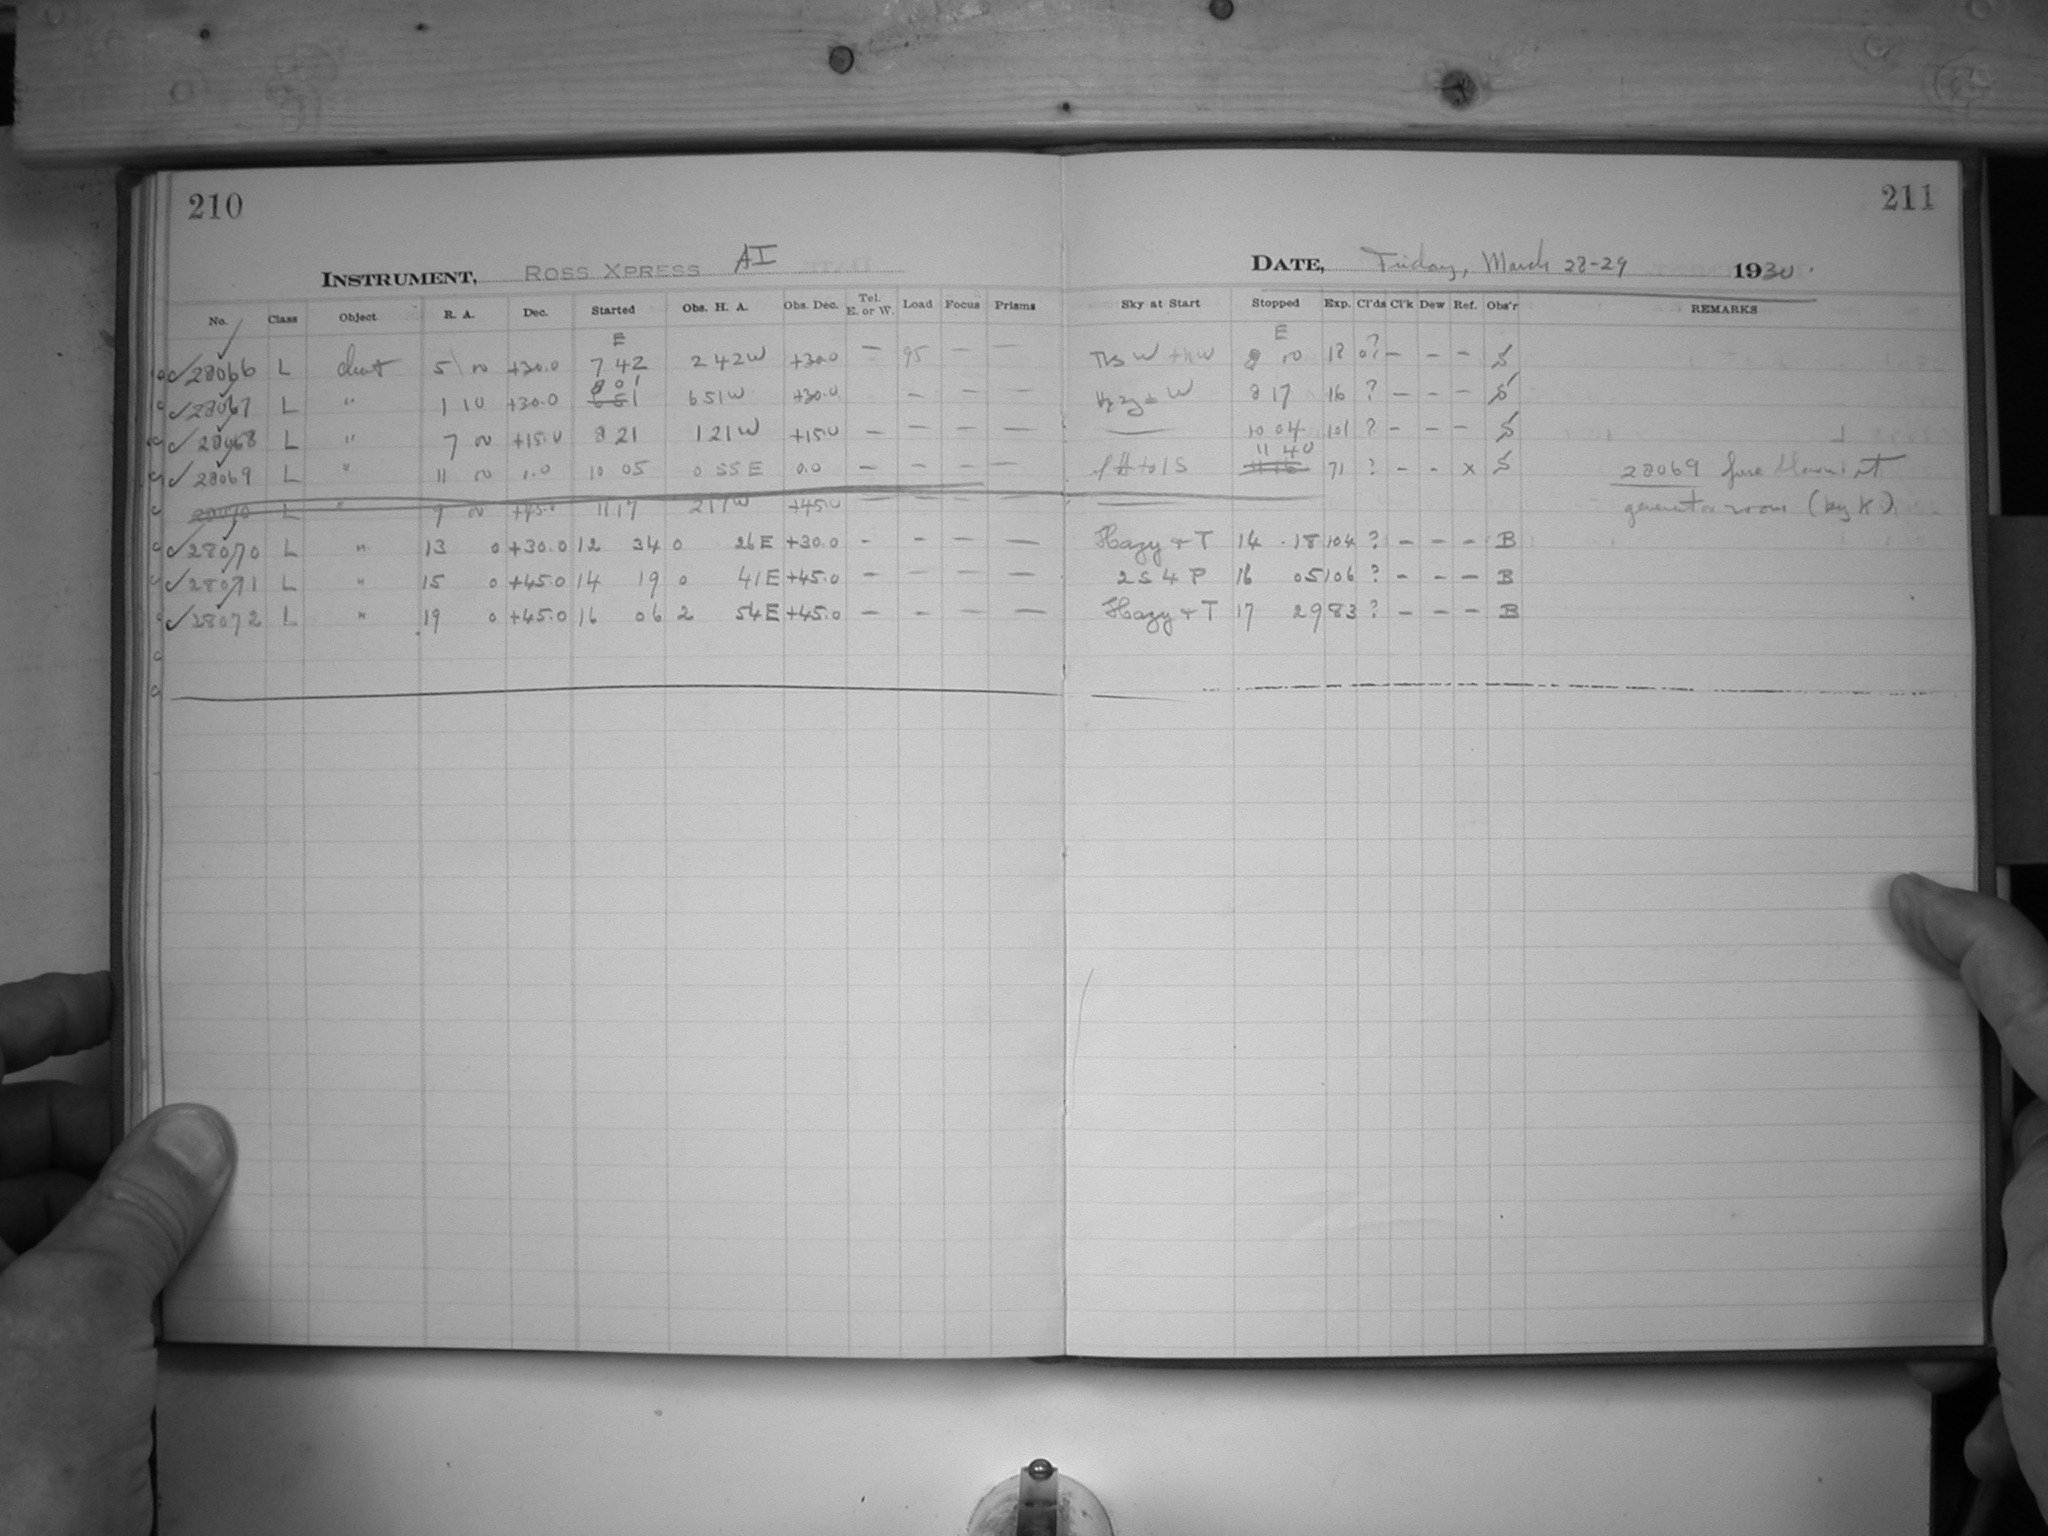 210
211
INSTRUMENT, ROSS XPRESS AI
DATE, Friday, March 28-29 1930.
No. Class Object R. A. Dec. Started Obs. H. A. Obs. Dec. Tel. E. or W. Load Focus Prisms Sky at Start Stopped Exp. Cl'ds Cl'k Dew Ref. Obs'r REMARKS
E E
✓28066 L chart 5 00 +30.0 7 42 2 42W +30.0 — 95 — — W 8 00 18 0? — — — S
✓28067 L " 1 10 +30.0 8 01 6 51W +30.0 — — — W 8 17 16 ? — — — S
✓28068 L " 7 00 +15.0 8 21 1 21W +15.0 — — — — — 10 04 101 ? — — — S
✓28069 L " 11 00 0.0 10 05 0 55E 0.0 — — — — 11 40 71 ? — — x S 28069 fuse at
28070 L " 9 00 +45.0 11 17 2 17W +45.0 — — — — — generator room (by K)
✓28070 L " 13 0 +30.0 12 34 0 26E +30.0 - - - — Hazy + T 14 18 104 ? - - - B
✓28071 L " 15 0 +45.0 14 19 0 41E +45.0 - - - — 2 S 4 P 16 05 106 ? - - - B
✓28072 L " 19 0 +45.0 16 06 2 54E +45.0 - - - — Hazy + T 17 29 83 ? - - - B